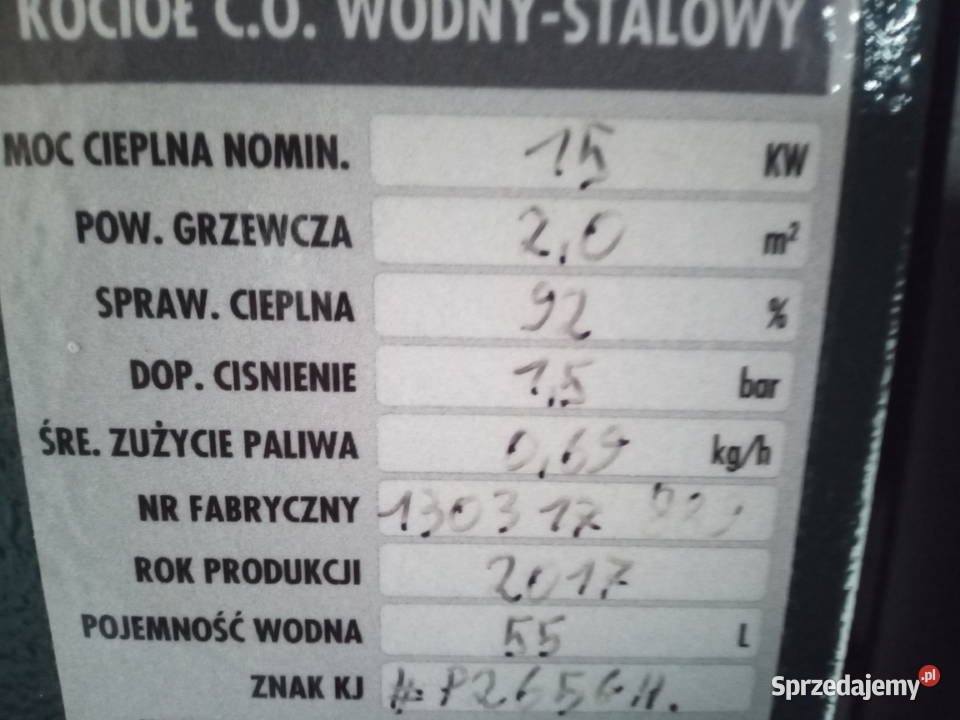 KOCIOŁ C.O. WODNY-STALOWY
MOC CIEPLNA NOMIN. 15 KW
POW. GRZEWCZA 2,0 m²
SPRAW. CIEPLNA 92 %
DOP. CISNIENIE 1,5 bar
ŚRE. ZUŻYCIE PALIWA 0,69 kg/h
NR FABRYCZNY 130317
ROK PRODUKCJI 2017
POJEMNOŚĆ WODNA 55 L
ZNAK KJ
Sprzedajemy.pl